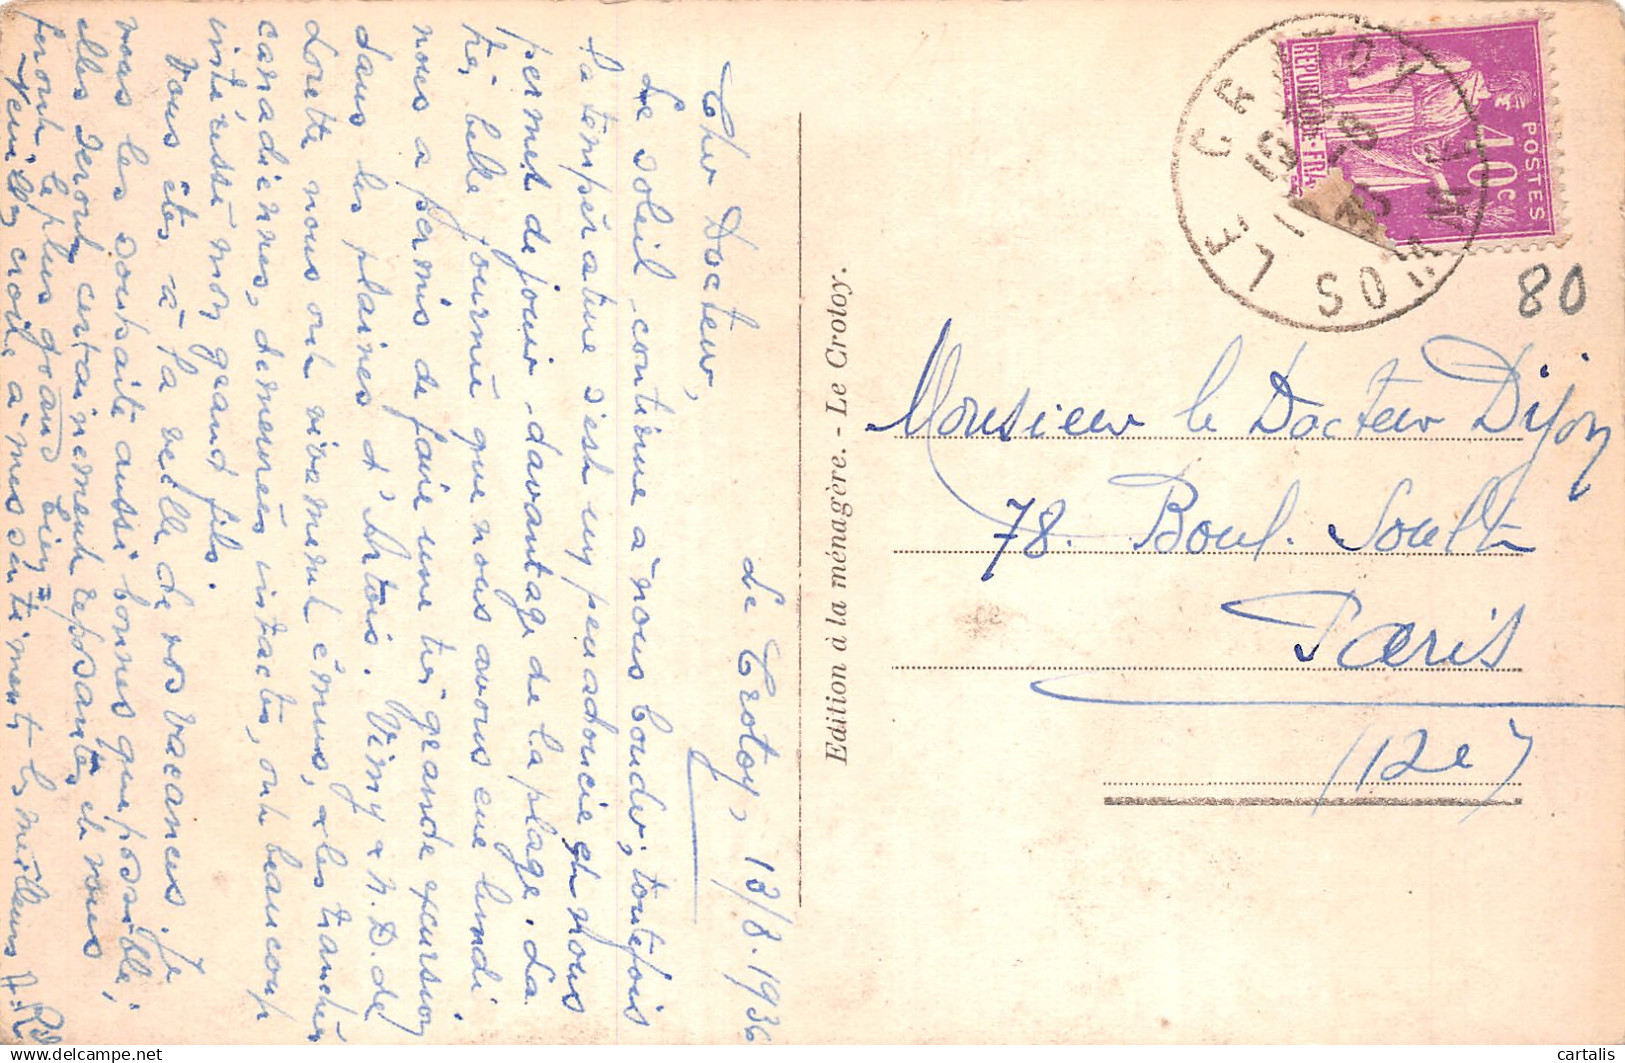 Le Crotoy, 13/8.1936
Cher Docteur,
Le soleil continue à nous bouder, toutefois
la température s'est un peu adoucie et nous
permet de jouir davantage de la plage. La
très belle journée que nous avons eue lundi
nous a permis de faire une très grande excursion
dans les plaines d'Artois. Vimy & N.D. de
Lorette nous ont vivement émus, & les tranchées
canadiennes, demeurées intactes, ont beaucoup
intéressé mon grand fils.
Vous êtes à la veille de vos vacances, je
vous les souhaite aussi bonnes que possible,
elles seront certainement reposantes et vous
feront le plus grand bien.
Veuillez croire à mes sentiments les meilleurs
Edition à la ménagère. - Le Crotoy.
LE CROTOY
SOMME
REPUBLIQUE-FRA
POSTES
40c
80
Monsieur le Docteur Dijon
78. Boul. Soult
Paris
(12e)
cartalis